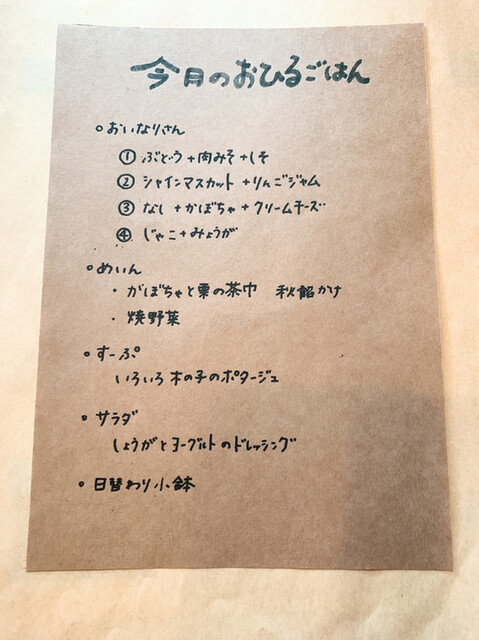 今月のおひるごはん
○おいなりさん
① ぶどう+肉みそ+しそ
② シャインマスカット+りんごジャム
③ なし+かぼちゃ+クリームチーズ
④ じゃこ+みょうが
○めいん
・かぼちゃと栗の茶巾 秋餡かけ
・焼野菜
○すーぷ
いろいろ木の子のポタージュ
○サラダ
しょうがとヨーグルトのドレッシング
○日替わり小鉢